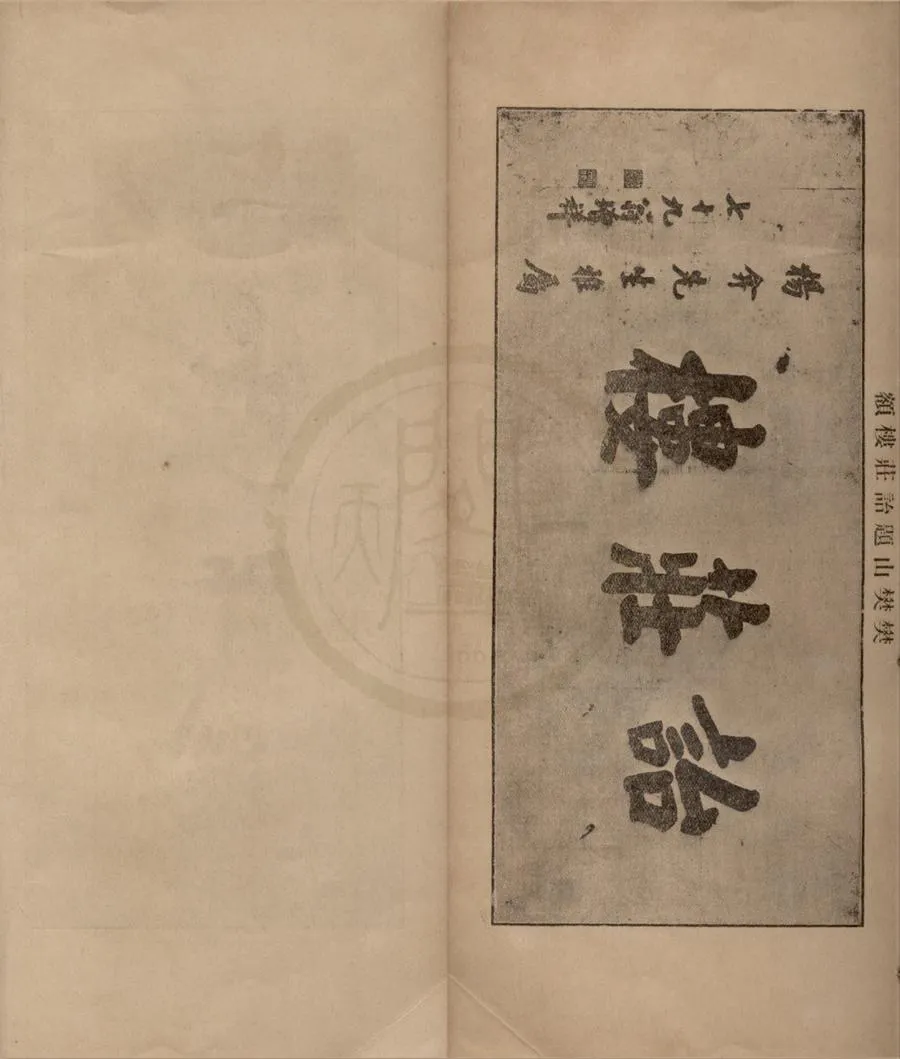 樊樊山題詒莊樓額
詒莊樓
楊弇先生雅屬
七十九翁增祥